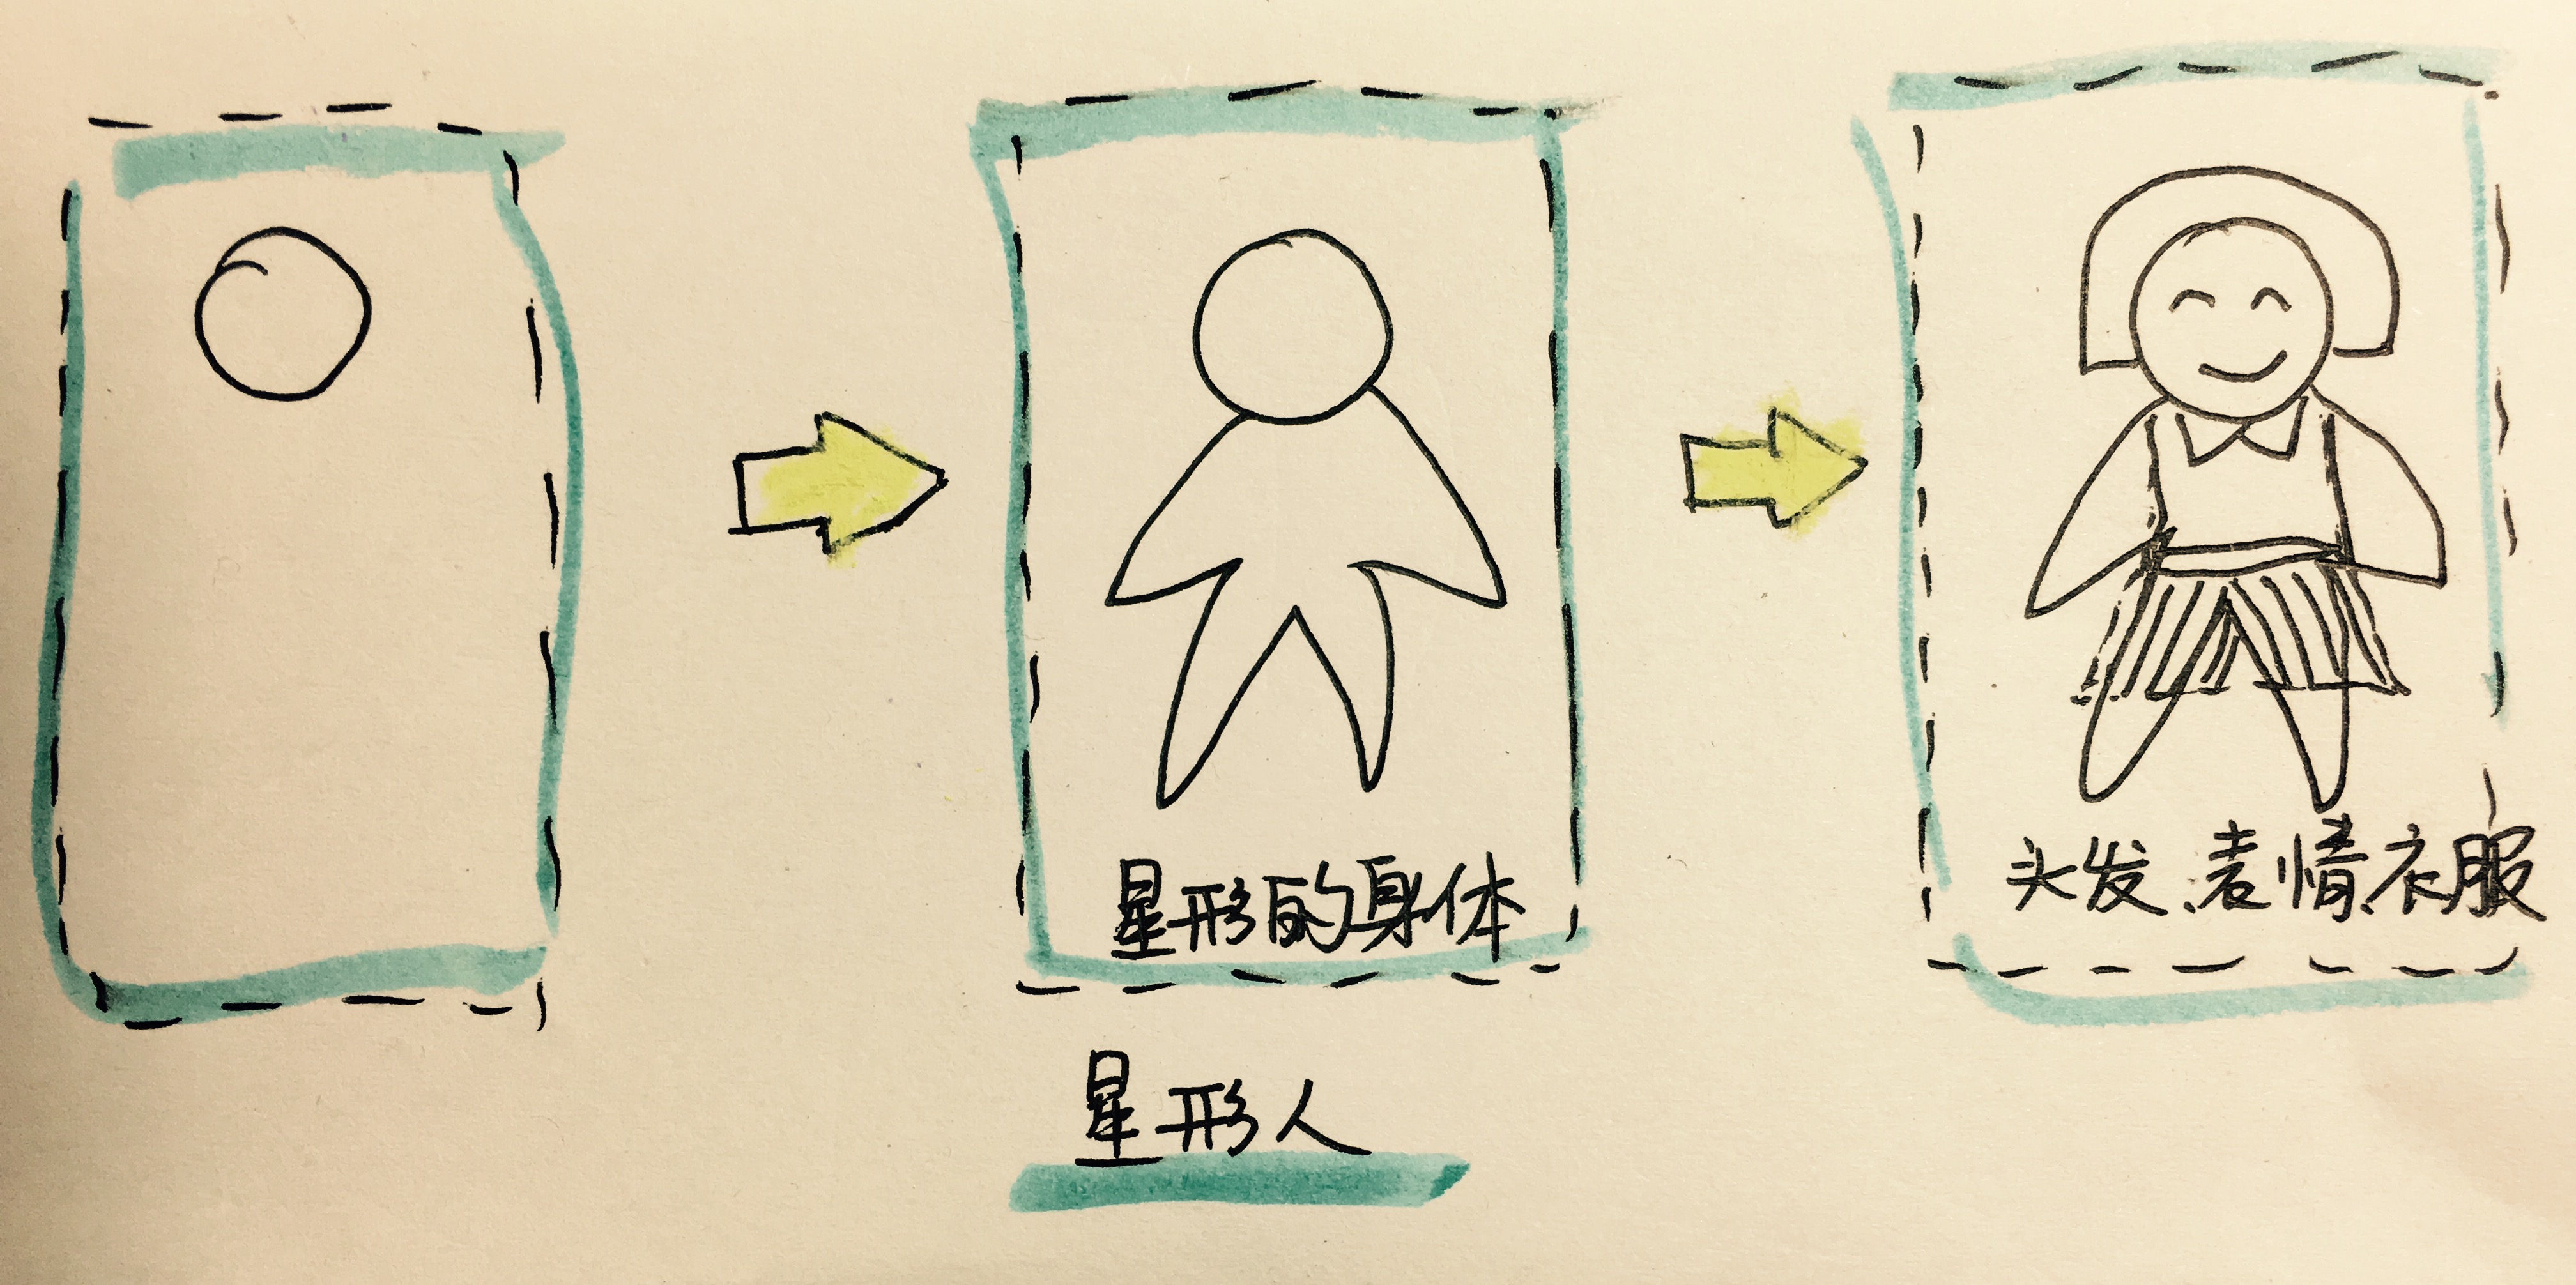 星形的身体
头发、表情、衣服
星形人